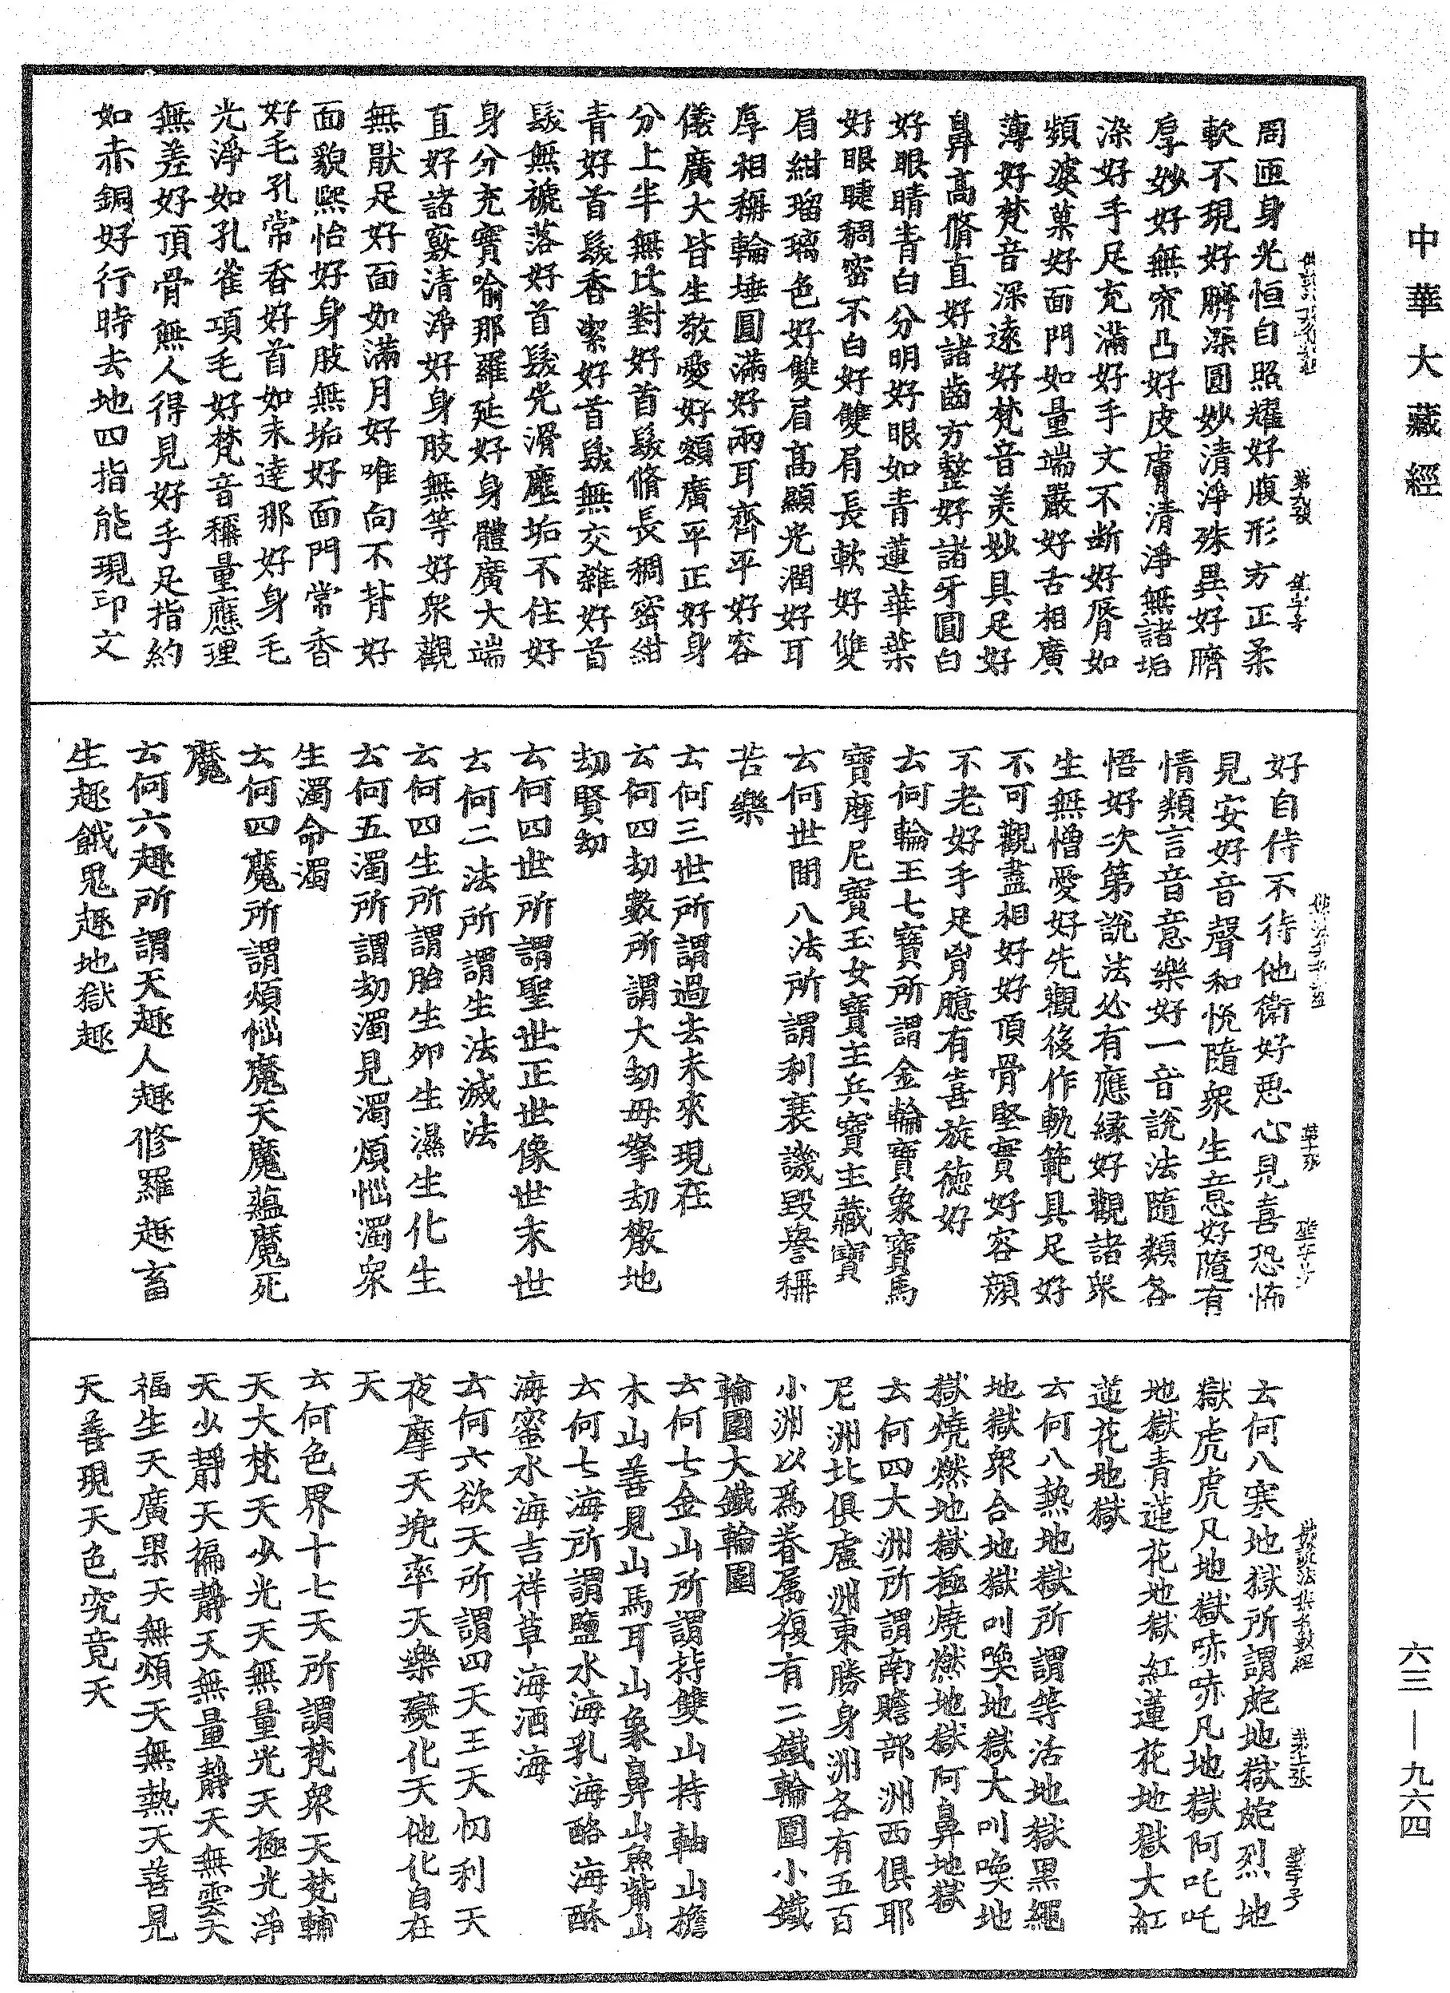 中華大藏經
周匝身光恒自照耀好腹形方正柔
軟不現好臍深圓妙清淨殊異好臍
厚妙好無窊凸好皮膚清淨無諸垢
染好手足充滿好手文不断好脣如
頻婆菓好面門如量端嚴好舌相廣
薄好梵音深遠好梵音美妙具足好
鼻高脩直好諸齒方整好諸牙圓白
好眼睛青白分明好眼如青蓮華葉
好眼睫稠密不白好雙眉長軟好雙
眉紺瑠璃色好雙眉高顯光潤好耳
厚相稱輪埵圓滿好兩耳齊平好容
儀廣大皆生敬愛好額廣平正好身
分上半無比對好首髮脩長稠密紺
青好首髮香潔好首髮無交雜好首
髮無褫落好首髮光滑塵垢不住好
身分充實喻那羅延好身體廣大端
直好諸竅清淨好身肢無等好衆觀
無猒足好面如滿月好唯向不背好
面貌熙怡好身肢無垢好面門常香
好毛孔常香好首如末達那好身毛
光淨如孔雀項毛好梵音稱量應理
無差好頂骨無人得見好手足指約
如赤銅好行時去地四指能現印文
好自侍不待他衛好惡心見喜恐怖
見安好音聲和悅隨衆生意好隨有
情類言音意樂好一音說法隨類各
悟好次第說法必有應緣好觀諸衆
生無憎愛好先觀後作軌範具足好
不可觀盡相好好頂骨堅實好容顔
不老好手足胷臆有喜旋德好
云何輪王七寶所謂金輪寶象寶馬
寶摩尼寶玉女寶主兵寶主藏寶
云何世間八法所謂利衰譏毀譽稱
苦樂
云何三世所謂過去未來現在
云何四劫數所謂大劫毋拏劫檄地
劫賢劫
云何四世所謂聖世正世像世末世
云何二法所謂生法滅法
云何四生所謂胎生卵生濕生化生
云何五濁所謂劫濁見濁煩惱濁衆
生濁命濁
云何四魔所謂煩惱魔天魔蘊魔死
魔
云何六趣所謂天趣人趣修羅趣畜
生趣餓鬼趣地獄趣
云何八寒地獄所謂皰地獄皰烈地
獄虎虎凡地獄㖒㖒凡地獄阿吒吒
地獄青蓮花地獄紅蓮花地獄大紅
蓮花地獄
云何八熱地獄所謂等活地獄黑繩
地獄衆合地獄叫喚地獄大叫喚地
獄燒燃地獄極燒燃地獄阿鼻地獄
云何四大洲所謂南贍部洲西俱耶
尼洲北俱盧洲東勝身洲各有五百
小洲以爲眷属復有二鐵輪圍小鐵
輪圍大鐵輪圍
云何七金山所謂持雙山持軸山擔
木山善見山馬耳山象鼻山魚觜山
云何七海所謂鹽水海乳海酪海酥
海蜜水海吉祥草海酒海
云何六欲天所謂四天王天忉利天
夜摩天兜率天樂變化天他化自在
天
云何色界十七天所謂梵衆天梵輔
天大梵天少光天無量光天極光淨
天少靜天徧靜天無量靜天無雲天
福生天廣果天無煩天無熱天善見
天善現天色究竟天
六三—九六四